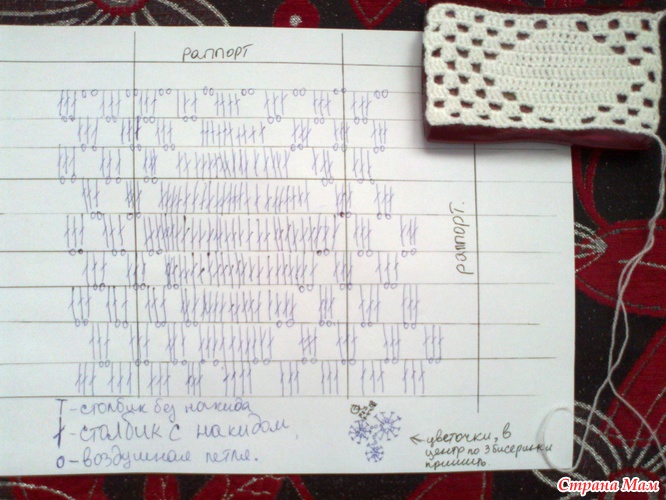 раппорт
раппорт.
Т - столбик без накида
† - столбик с накидом,
о - воздушная петля.
← цветочки, в
центр по 3 бисеринки
пришить.
Страна Мам